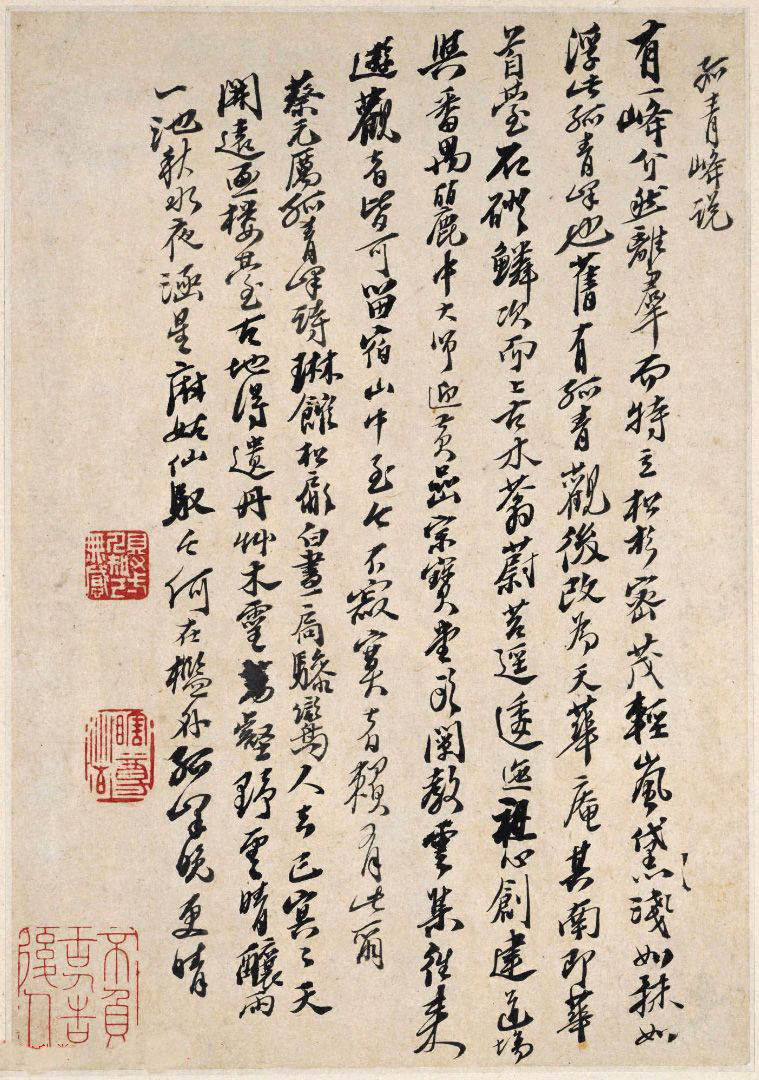 孤青峰説
有一峰介然離羣而特立松杉密茂輕嵐黛淺如抹如
浮此孤青峰也舊有孤青觀後改為天華庵其南即華
首臺石磴鱗次而上古木蓊蔚苕遥逶迤祖心創建道場
與番禺麗中大師迎黄嵓宗寶闡教雲集往來
遊觀者皆可留宿山中至今不寂寞者賴有此爾
蔡元厲孤青峰詩琳館松扉白晝扃驂鸞人去已冥〻天
開遠画樓臺古地得遺丹艸木靈萬壑野雲晴釀雨
一池秋水夜涵星麻姑仙馭今何在檻外孤峰晚更晴
不負古人告後人